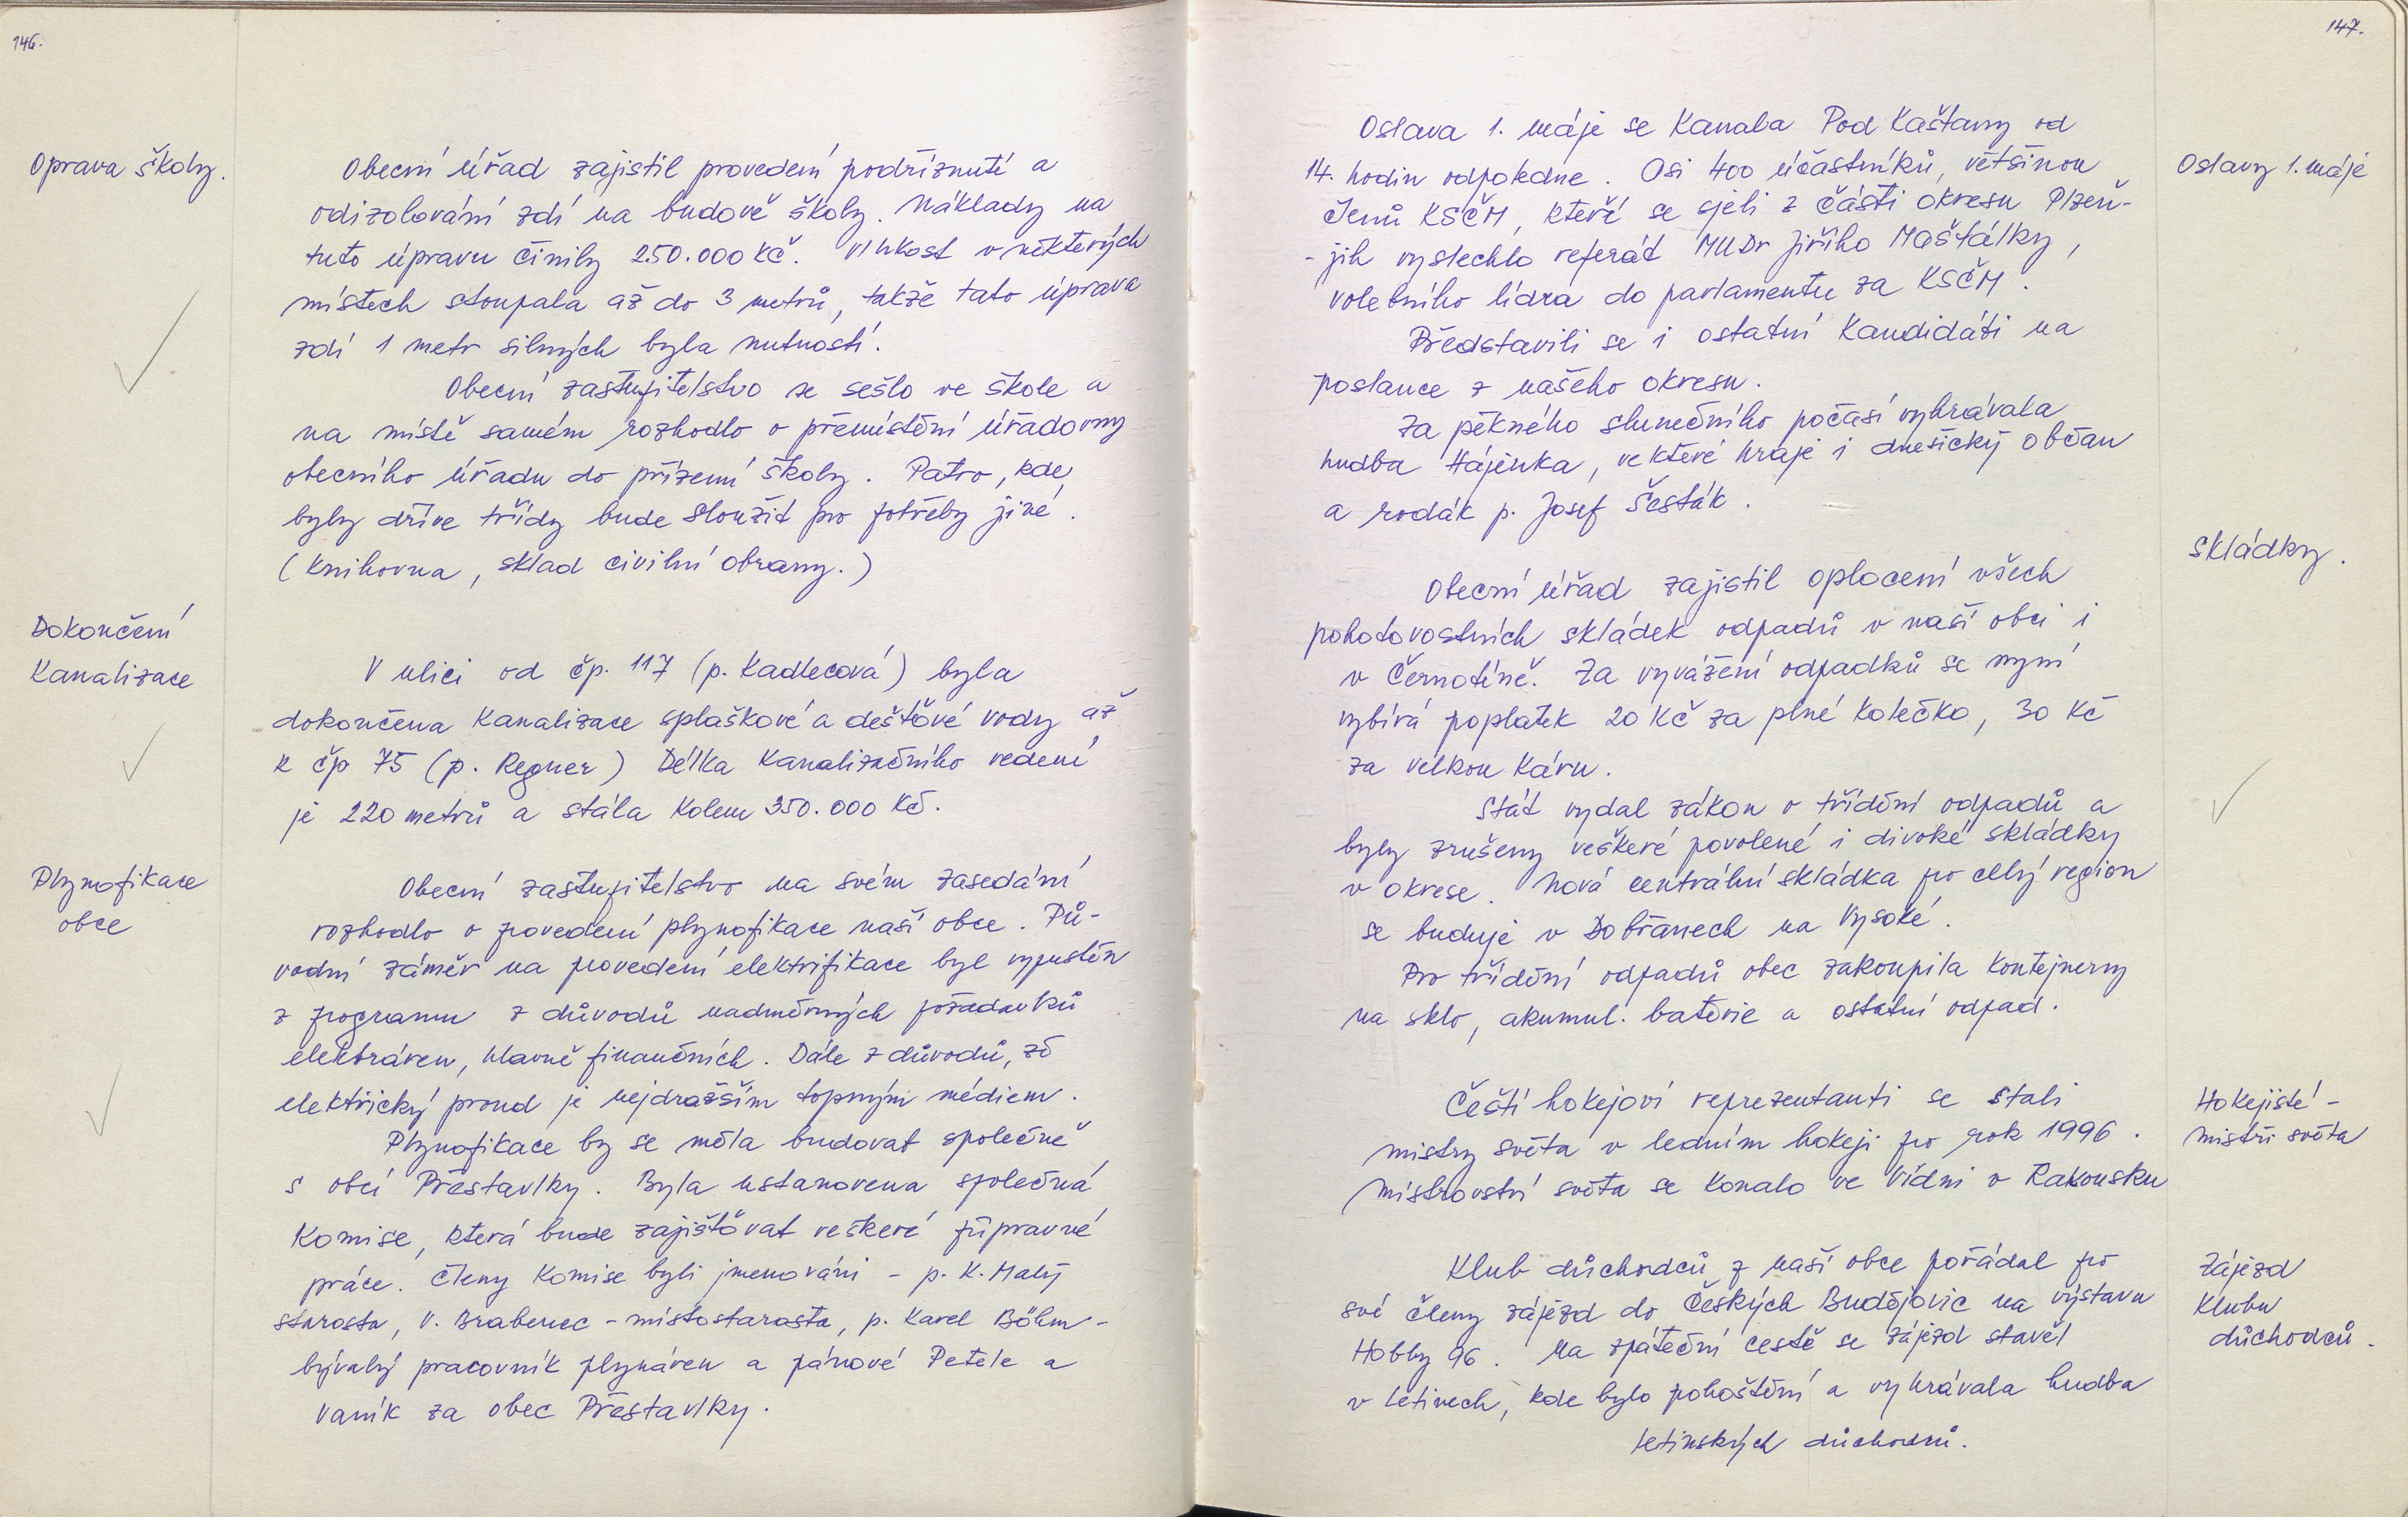 146.
Oprava školy.
Obecní úřad zajistil provedení podříznutí a
odizolování zdí na budově školy. Náklady na
tuto úpravu činily 250.000 Kč. Vlhkost v některých
místech stoupala až do 3 metrů, takže tato úprava
zdí 1 metr silných byla nutností.
Obecní zastupitelstvo se sešlo ve škole a
na místě samém rozhodlo o přemístění úřadovny
obecního úřadu do přízemí školy. Patro, kde
byly dříve třídy bude sloužit pro potřeby jiné.
(Knihovna, sklad civilní obrany.)
Dokončení
Kanalizace
V ulici od čp. 117 (p. Kadlecová) byla
dokončena Kanalizace splaškové a dešťové vody až
k čp 75 (p. Regner) Délka Kanalizačního vedení
je 220 metrů a stála Kolem 350.000 Kč.
Plynofikace
obce
Obecní zastupitelstvo na svém zasedání
rozhodlo o provedení plynofikace naší obce. Pů-
vodní záměr na provedení elektrifikace byl vypuštěn
z programu z důvodů nadměrných požadavků
elektráren, hlavně finančních. Dále z důvodů, že
elektřický proud je nejdražším topným médiem.
Plynofikace by se měla budovat společně
s obcí Přestavlky. Byla ustanovena společná
Komise, která bude zajišťovat veškeré přípravné
práce. Členy Komise byli jmenováni - p. K. Malý
starosta, V. Brabenec - místostarosta, p. Karel Böhm -
bývalý pracovník plynáren a pánové Petele a
Vaník za obec Přestavlky.
147.
Oslavy 1. máje
Oslava 1. máje se Kanala Pod Kaštany od
14. hodin odpoledne. Asi 400 účastníků, většinou
členů KSČM, kteří se sjeli z části okresu Plzeň-
- jih vyslechlo referát MUDr Jiřího Maštálky,
volebního lídra do parlamentu za KSČM.
Představili se i ostatní Kandidáti na
poslance z našeho okresu.
Za pěkného slunečního počasí vyhrávala
hudba Hájenka, ve které hraje i dnešický občan
a rodák p. Josef Šesták.
Skládky.
Obecní úřad zajistil oplocení všech
pohotovostních skládek odpadů v naší obci i
v Černotíně. Za vyvážení odpadků se nyní
vybírá poplatek 20 Kč za plné Kolečko, 30 Kč
za velkou Káru.
Stát vydal zákon o třídění odpadů a
byly zrušeny veškeré povolené i divoké skládky
v okrese. Nová centrální skládka pro celý region
se buduje v Dobřanech na Vysoké.
Pro třídění odpadů obec zakoupila Kontejnery
na sklo, akumul. baterie a ostatní odpad.
Hokejisté -
mistři světa
Čeští hokejoví reprezentanti se stali
mistry světa v ledním hokeji pro rok 1996.
Mistrovství světa se Konalo ve Vídni v Rakousku
Zájezd
Klubu
důchodců.
Klub důchodců z naší obce pořádal pro
své členy zájezd do Českých Budějovic na výstavu
Hobby 96. Na zpáteční cestě se zájezd stavěl
v Letinech, kde bylo pohoštění a vyhrávala hudba
letinských důchodců.